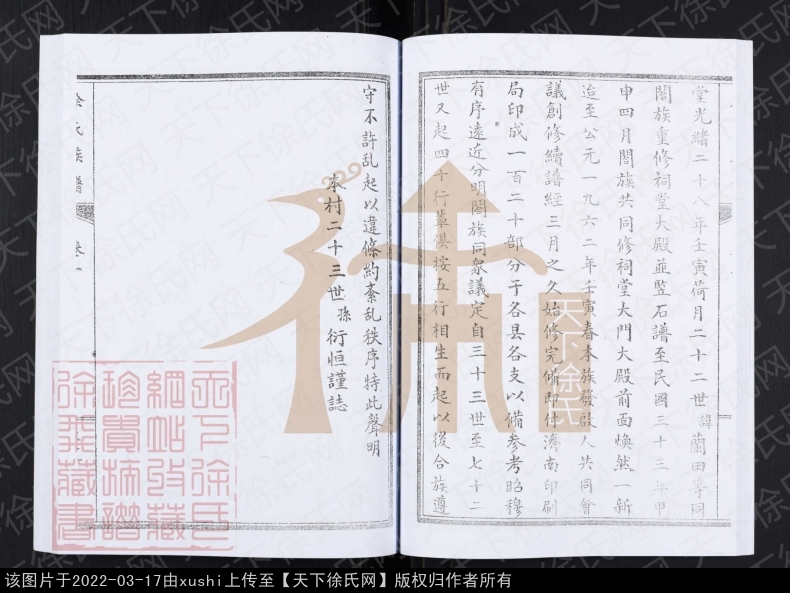 堂光緒二十八年壬寅荷月二十二世諱蘭田等同
閤族重修祠堂大殿並竪石譜至民國三十三年甲
申四月閤族共同修祠堂大門大殿前面煥然一新
迨至公元一九六二年壬寅春本族發啟人共同會
議創修續譜經三月之久始修完備即付濟南印刷
局印成一百二十部分于各县各支以備参考昭穆
有序遠近分明閤族同衆議定自三十三世至七十二
世又起四十行輩俱按五行相生而起以後合族遵
守不許乱起以違條約紊乱秩序特此聲明
本村二十三世孫衍恒謹誌
徐氏族譜 卷一
天下徐氏
天下徐氏
網站收藏
珍貴族譜
徐氏藏書
天下徐氏网
该图片于2022-03-17由xushi上传至【天下徐氏网】版权归作者所有